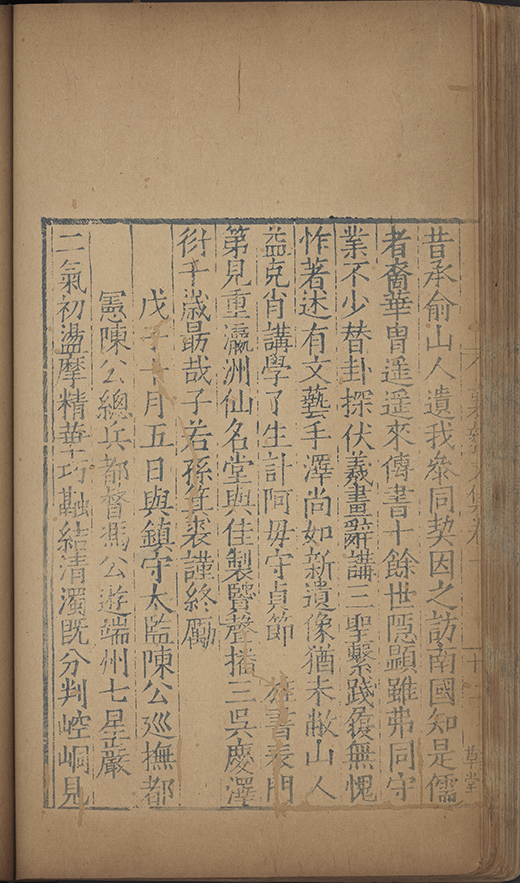 昔承俞山人遺我叅同契因之訪南國知是儒
者裔華胄遥遥來傳書十餘世隱顯雖弗同守
業不少替卦探伏羲畫辭講三聖繫踐履無愧
怍著述有文藝手澤尚如新遺像猶未敝山人
益克肖講學了生計阿毋守貞節 書表門
第見重瀛洲仙名堂與佳製賢聲播三吳慶澤
衍千歲勗哉子若孫箕裘謹終勵
戊子十月五日與鎮守太監陳公廵撫都
憲陳公總兵都督馮公遊端州七星巖
二氣初盪摩精華巧融結清濁既分判崆峒見
草堂